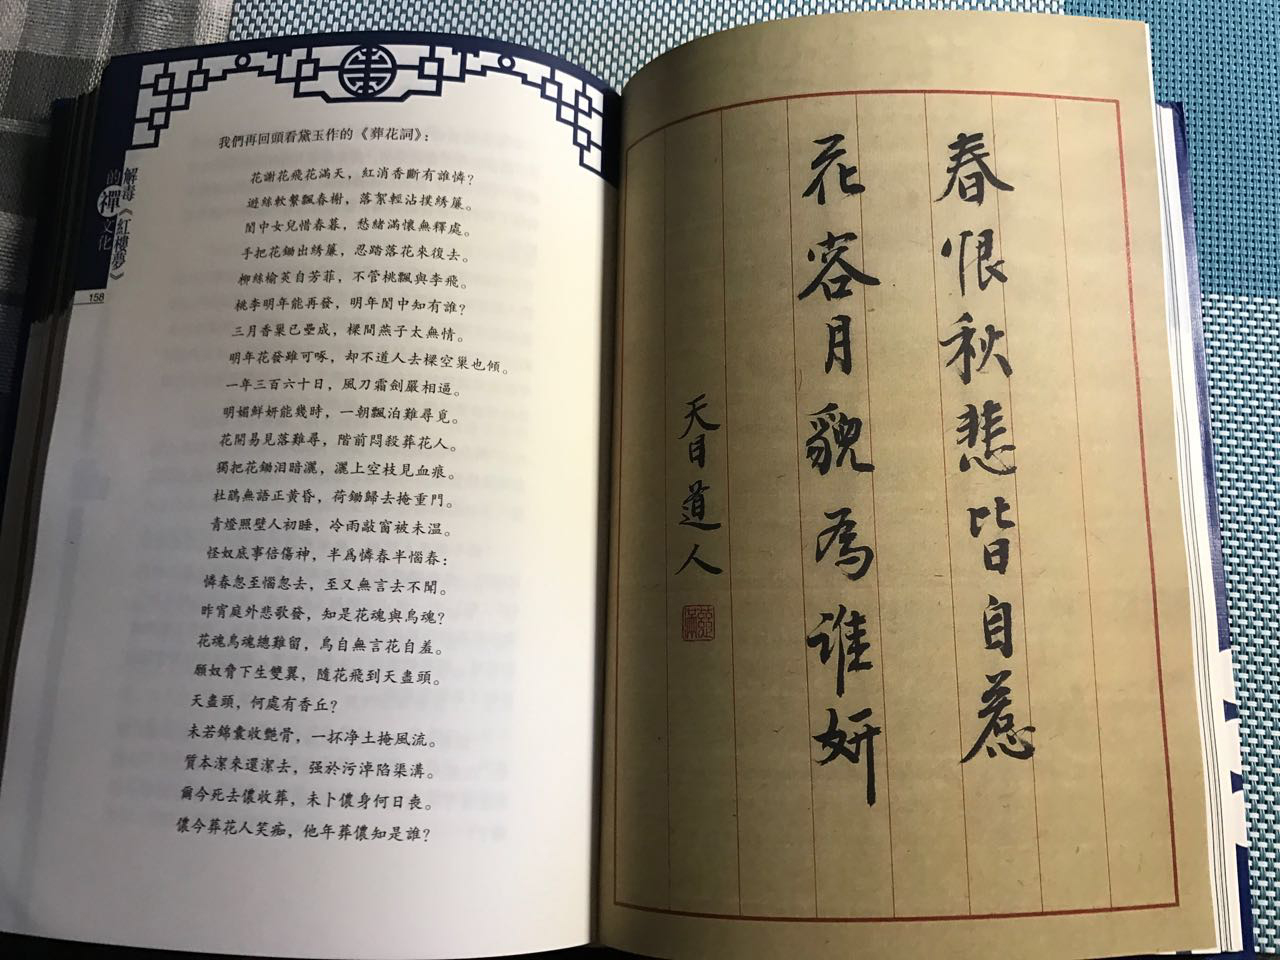 解毒《紅樓夢》
的禪文化
158
我們再回頭看黛玉作的《葬花詞》：
花謝花飛花滿天，紅消香斷有誰憐？
遊絲軟繫飄春榭，落絮輕沾撲綉簾。
閨中女兒惜春暮，愁緒滿懷無釋處。
手把花鋤出綉簾，忍踏落花來復去。
柳絲榆莢自芳菲，不管桃飄與李飛。
桃李明年能再發，明年閨中知有誰？
三月香巢已壘成，樑間燕子太無情。
明年花發雖可啄，却不道人去樑空巢也傾。
一年三百六十日，風刀霜劍嚴相逼。
明媚鮮妍能幾時，一朝飄泊難尋覓。
花開易見落難尋，階前悶殺葬花人。
獨把花鋤泪暗灑，灑上空枝見血痕。
杜鵑無語正黃昏，荷鋤歸去掩重門。
青燈照壁人初睡，冷雨敲窗被未温。
怪奴底事倍傷神，半爲憐春半惱春：
憐春忽至惱忽去，至又無言去不聞。
昨宵庭外悲歌發，知是花魂與鳥魂？
花魂鳥魂總難留，鳥自無言花自羞。
願奴脅下生雙翼，隨花飛到天盡頭。
天盡頭，何處有香丘？
未若錦囊收艷骨，一抔净土掩風流。
質本潔來還潔去，强於污淖陷渠溝。
爾今死去儂收葬，未卜儂身何日喪。
儂今葬花人笑痴，他年葬儂知是誰？
春恨秋悲皆自惹
花容月貌為谁妍
天目道人